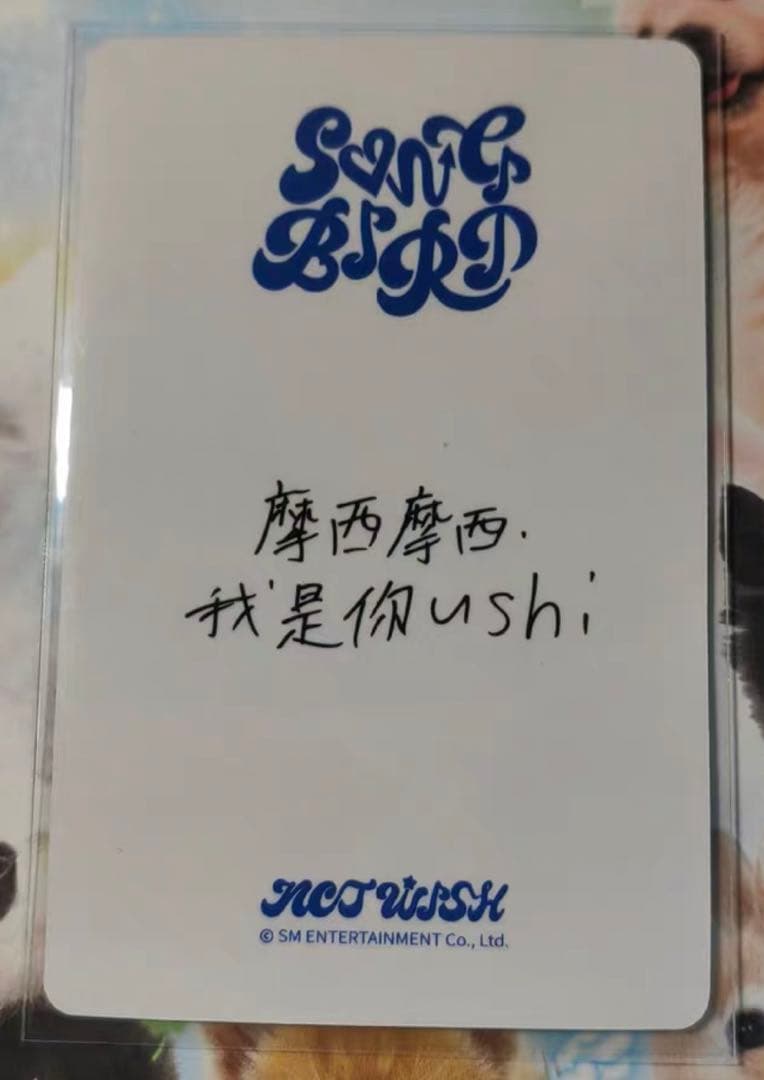 SONG
BIRD
摩西摩西.
我是你ushi
NCT WISH
© SM ENTERTAINMENT Co., Ltd.